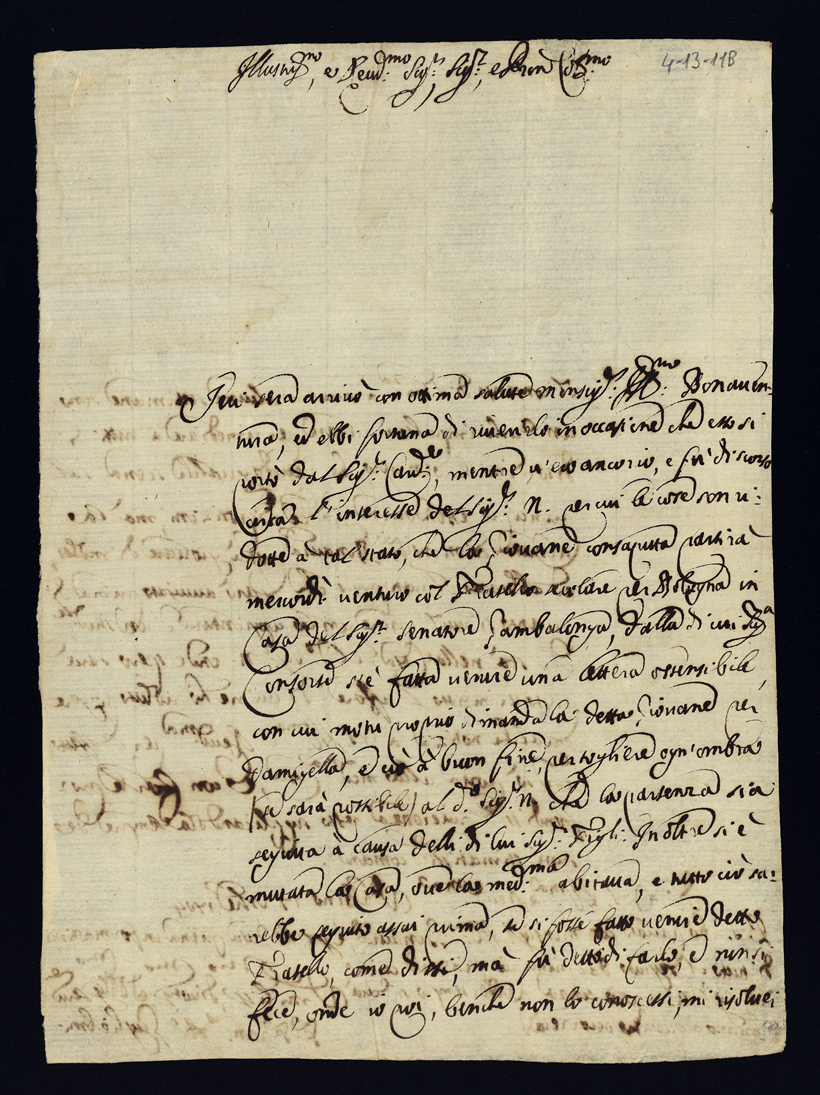 Illustr.mo, e Reud.mo Sig.r Sig.r, e Pron Col.mo
4-13-118
Jeri sera arriuò con ottima salute Monsig.r Ill.mo Bonauen-
tura, ed ebbi fortuna di riuerirlo in occasione che esso si
portò dal Sig.r Card.le, mentre u'ero ancor io, e fù discorso
circa l'interesse del Sig.r N. per cui le cose son ri-
dotte à tal stato, che la Giouane consaputa partirà
mercordì uenturo col Fratello scolare per Bologna in
Casa del Sig.r Senatore Zambalonga, dalla di cui Sig.a
Consorte s'è fatta uenire una lettera ostensibile,
con cui motu proprio dimanda la detta Giouane per
Damigella, e ciò à buon fine, per togliere ogn'ombra
(se sarà possibile) al d.o Sig.r N. che la partenza sia
seguita à causa delli di lui Sig.ri Figli. Inoltre si è
mutata la Casa, oue la med.ma abitaua, e tutto ciò sa-
rebbe seguito assai prima, se si fosse fatto uenire detto
Fratello, come dissi, mà fù detto di farlo, e non si
fece, onde io poi, benche non lo conoscessi, mi risoluei